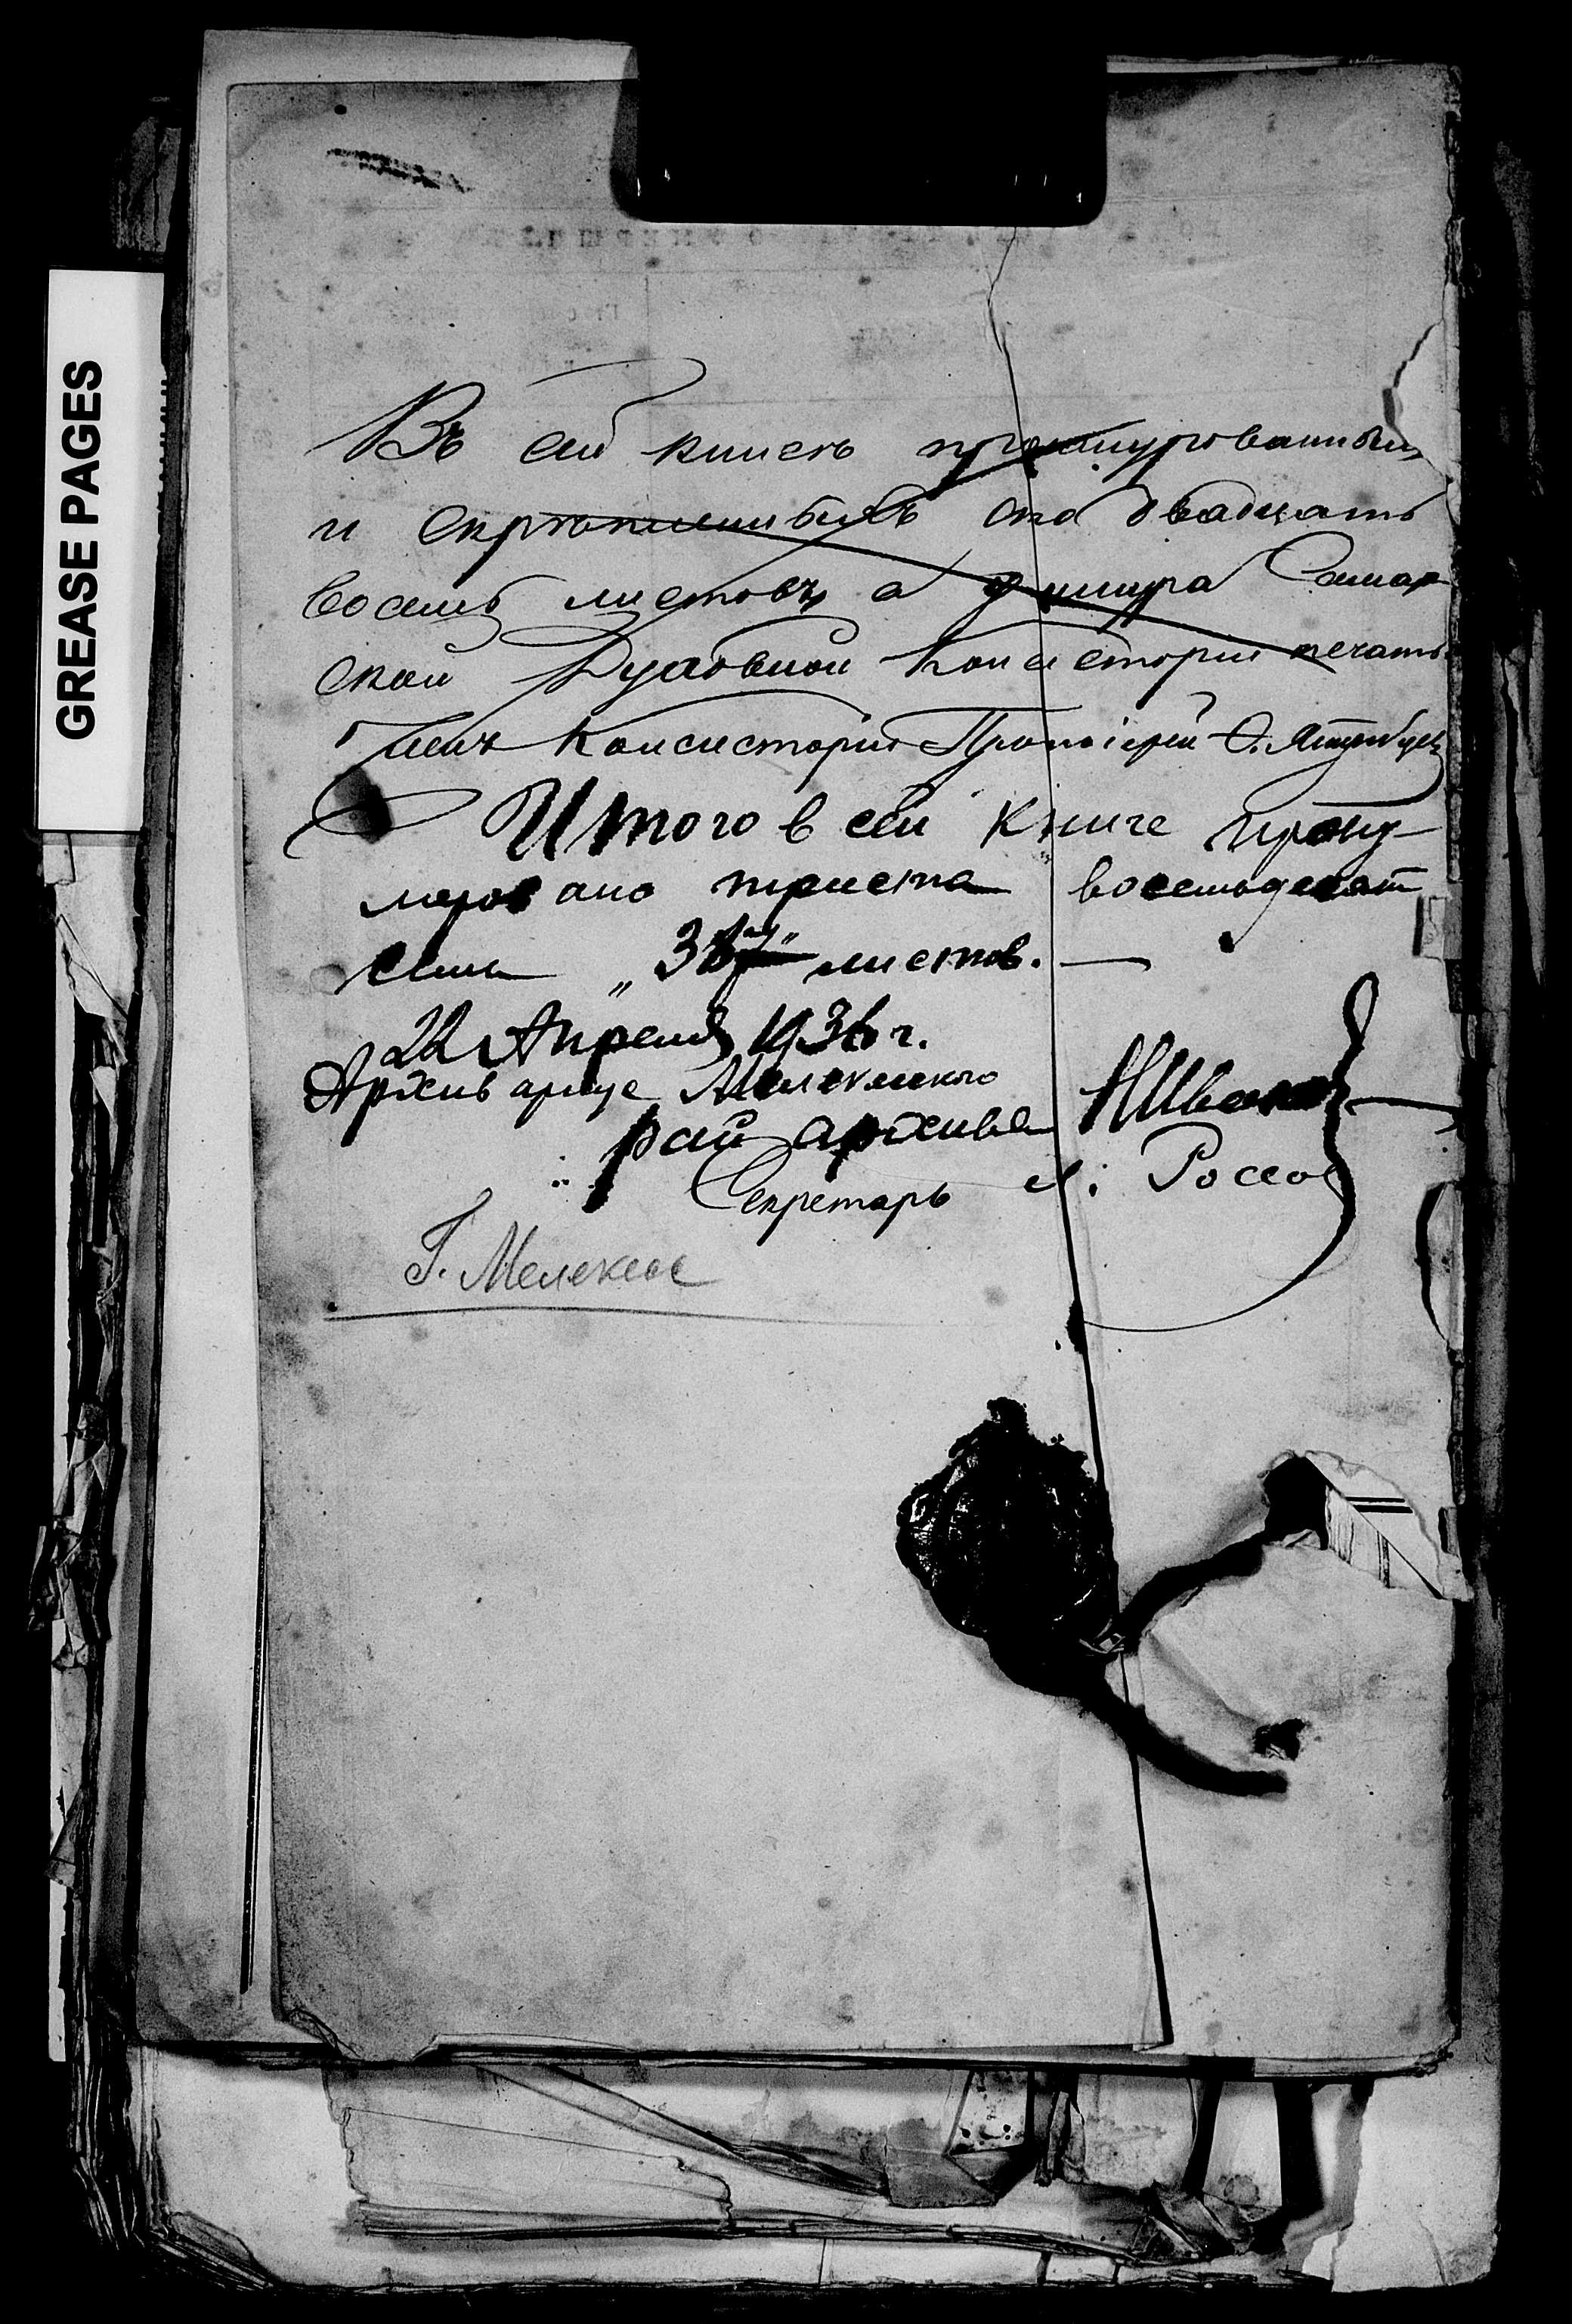 GREASE PAGES
Въ сей книгѣ прошнурованныхъ
и скрѣпленныхъ сто двадцать
восемь листовъ, а у шнура Самар
ской Духовной Консисторіи печать.
Членъ Консисторіи Протоіерей
Итого в сей книге прону-
меровано триста восемьдесят
семь „387" листов. —
22 Апреля 1936 г.
Архивариус Мелекесского
рай архива НИванов
Секретарь Россов
Г. Мелекесс